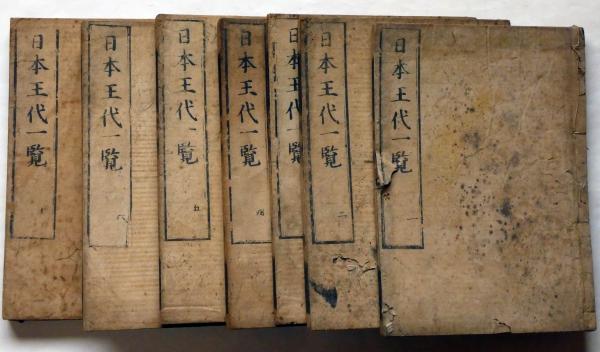 日本王代一覧 一
日本王代一覧 二
日本王代一覧
日本王代一覧 四
日本王代一覧 五
日本王代一覧 六
日本王代一覧